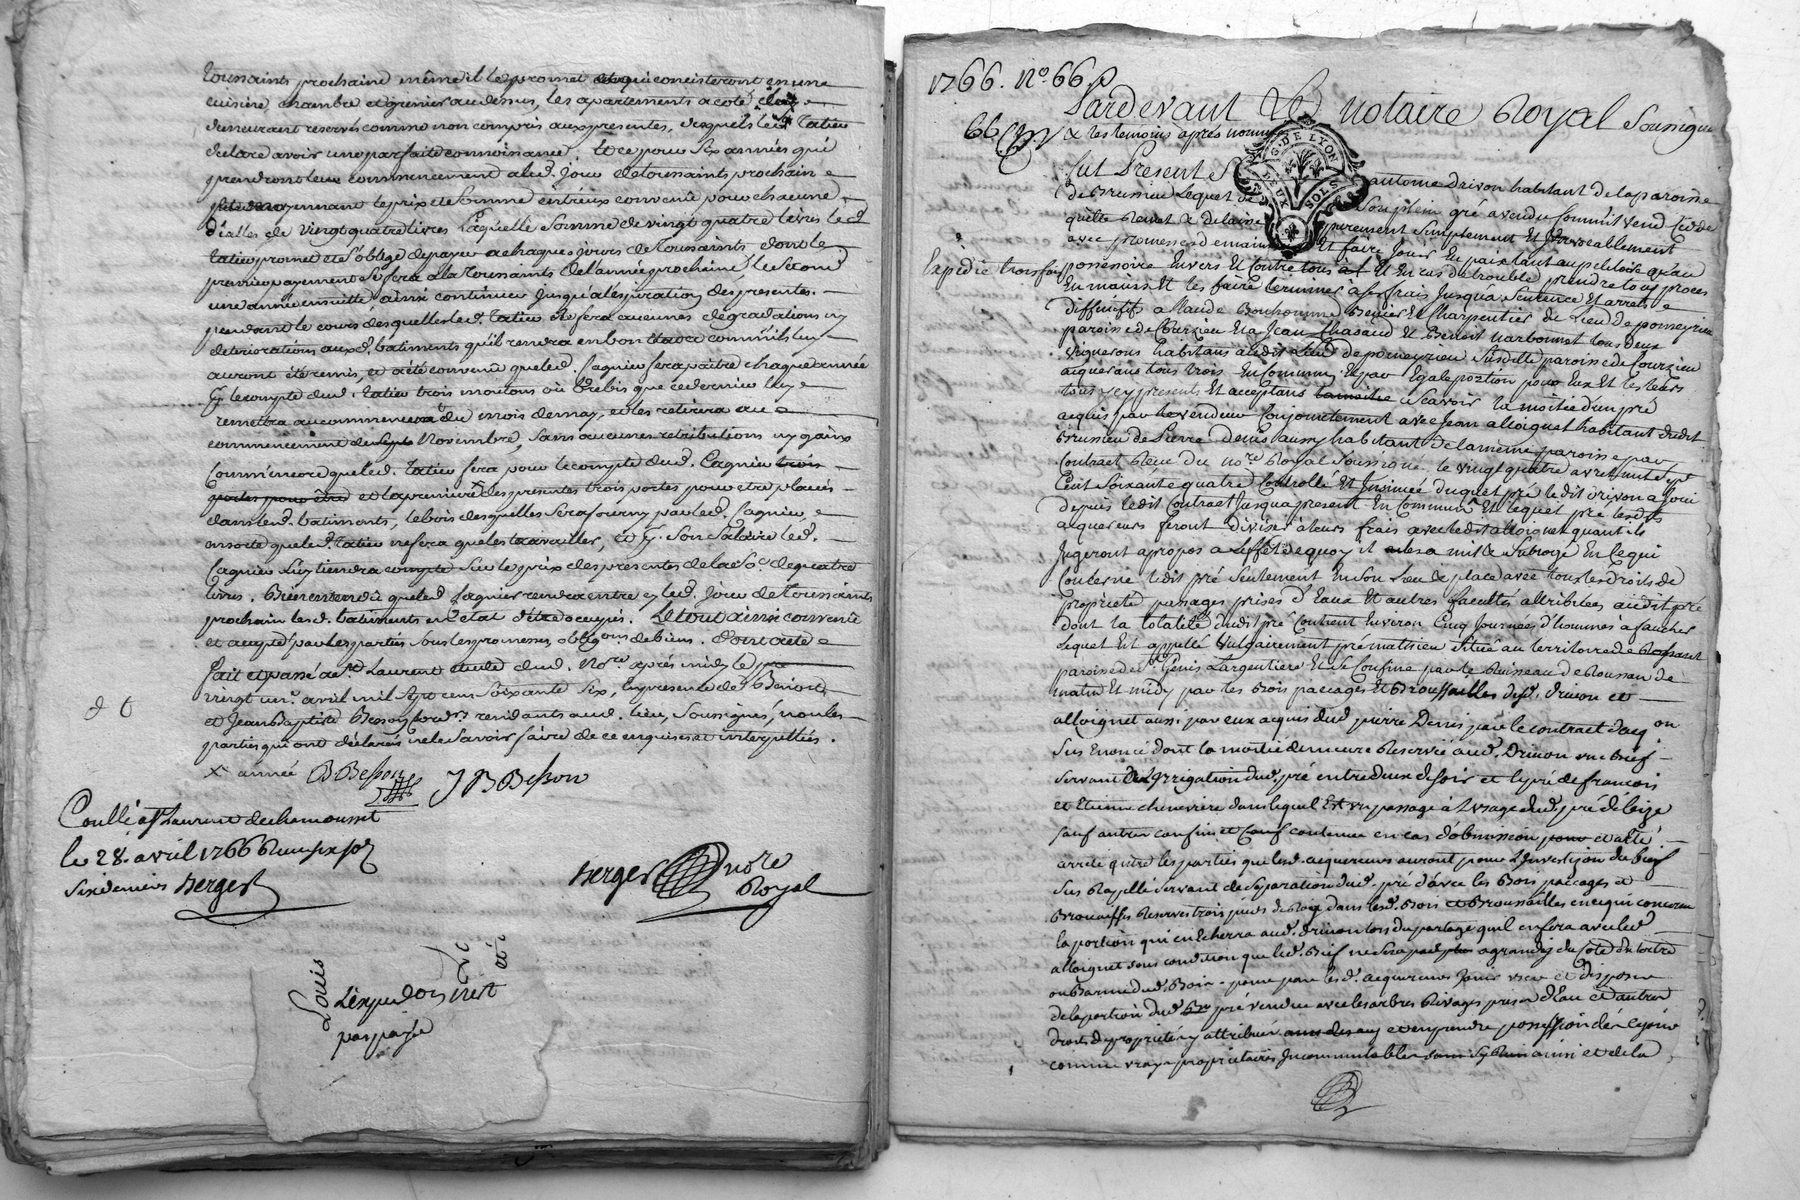 Toussaints prochaine même il le promet qui concisteront en une
cuisine chambre et grenier au dessus, les apartements a coté
demeurant reservés comme non compris aux presentes, desquels led. Tatieu
declare avoir une parfaite connoissance. Et ce pour six années qui
prendront leur commencement aud. jour de toussaints prochain
moyennant le prix et somme entr'eux convenû pour chacune
d'icelles de vingt quatre livres Laquelle somme de vingt quatre livres led
Tatieu promet et s'oblige de payer a chaque jours de Toussaints dont le
premier payement se fera a la Toussaints de l'année prochaine le second
une année ensuitte ainsi continuer jusqu'a l'expiration des presentes.
pendant le cours desquelles led. Tatieu ne fera aucunes degradations ny
deteriorations auxd. batiments qu'il rendra en bon comm'ils luy
auront été remis, et a été convenû que led. Cagnieu fera paitre chaque année
pr le compte dud. Tatieu trois moutons ou brebis que ce dernier luy
remettra au commencement du mois de may, et les retirera au
commencement de Novembre, sans aucunes retributions ny gains
Comm'encore que led. Tatieu fera pour le compte dud. Cagnieu trois
portes pour être et la premiere des presentes trois portes pour etre placées
dans lesd. batiments, le bois desquelles sera fourny par led. Cagnieu
ensorte que led. Tatieu ne fera que les travailler, et pr. son salaire led.
Cagnieu luy tiendra compte sur le prix des presentes de la so. de quatre
livres. Bien entendû que led Cagnieu rendra entre cy led. jour de toussaints
prochain lesd. batiments en l'état d'être occupés. Le tout ainsi convenû
et accepté par les parties sous les promesses, obligons de biens. Dont acte
fait et passé a St Laurent etude dud. Nore après midy le
vingt un. avril mil sept cens soixante six, en presence de Benoit
et Jean Baptiste Besson residants aud. lieu, soussignés, non les
parties qui ont déclarés ne le savoir faire de ce enquises et interpellées.
X année B Besson J B Besson
Conllé a St Laurent de chamousset
le 28. avril 1766 Reçu six sols
six deniers Berger
Berger nore
Royal
Louis
L'expedon n'est
pas payée
1766. No. 66
66
Pardevant Le notaire Royal soussigné
& les temoins apres nommés
G. DE LYON
DEUX SOLS
fut Present
antoine drivon habitant de la paroisse
de Brussieu Lequel de son plein gré a vendu comm'il vend cede
quitte Remet & delaisse purement simplement Et irrevocablement
avec promesse de maintenir Et faire jouir en paix tant au petitoire qu'au
Expedié trois fois
possessoire Envers Et contre tous Et En cas de trouble prendre tous proces
En mains Et les faire terminer a ses frais jusqu'a sentence Et arrets
diffinitifs a Claude Bonhomme Benier Et charpentier du Lieu de pomeyrieu
paroisse de Courzieu Et a Jean chasaud Et Benoit narbonnet tous deux
vignerons habitans audit Lieu de pomeyrieu susditte paroisse de Courzieu
acquereurs tous trois En Commun Et par Egale portion pour Eux Et les leurs
tous icy presents Et acceptans scavoir la moitié d'un pré
acquis par le vendeur conjointement avec Jean alloignet habitant dudit
Brussieu de Pierre denis aussy habitant de la meme paroisse par
Contract Reçu du nore Royal soussigné le vingt quatre avril mil sept
Cent soixante quatre Controllé Et insinué duquel pré ledit drivon a joui
depuis ledit Contract jusqua present En Commun Et lequel pré lesdits
acquereurs feront diviser a leurs frais avec ledit alloignet quant ils
jugeront apropos a l'effet de quoy il a mis & subrogé En ce qui
Concerne ledit pré seulement En son lieu & place avec tous les droits de
proprieté passages prises d'Eaux Et autres facultés attribuées audit pré
dont la totalité dudit pré Contient Environ Cinq journées d'hommes a faucher
Lequel Est appellé vulgairement pré matieu situé au territoire de
paroisse de St Genis L'argentiere Et se Confine par le Ruisseau de Rossan de
matin Et midy par les Bois paccages Et Broussailles desd. drivon et
alloignet aussi par eux acquis dud pierre Denis par le contract d'acqon
sus Enoncé dont la moitié demeure Reservée aud. Drivon un bief
servant d'irrigation dud. pré entredeux de soir et le pré de françois
et Etienne cheneviere dans lequel Est un passage a l'usage dud. pré de bize
sauf autres confins et Conf contenue en cas d'obmission et a été
arreté entre les parties que lesd. acquereurs auront pour du bief
sus Rapellé servant de separation dud. pré d'avec les Bois paccages et
Brouailles Reservés trois pieds de large dans lesd. Bois et Broussailles en ce qui concerne
la portion qui en Echerra aud. Drivon lors du partage quil en fera avec led
alloignet sous condition que led. Bief ne sera pas agrandi du coté du tertre
ou Barme dud. Bois. pour par lesd. acquereurs jouir user et disposer
de la portion dud. pré vendue avec les arbres Rivages prises d'Eau et d'autres
droits de proprieté y attribués et en prendre possession dès ce jour
comme vrays proprietaires incommutables ainsi et de la